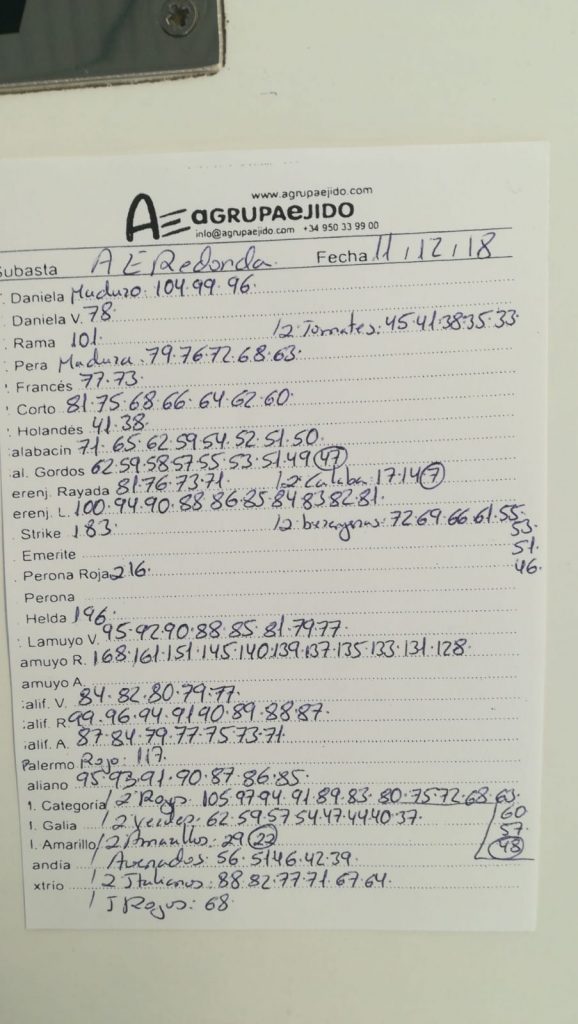 www.agrupaejido.com
AGRUPAEJIDO
info@agrupaejido.com +34 950 33 99 00
Subasta AE Redonda. Fecha 11/12/18
. Daniela Maduro. 104.99.96.
Daniela V. 78.
. Rama 101. /2 Tomates: 45.41.38.35.33.
. Pera Madura. 79.76.72.68.63.
. Francés 77.73.
. Corto 81.75.68.66.64.62.60.
. Holandés 41.38.
alabacin 71.65.62.59.54.52.51.50.
al. Gordos 62.59.58.57.55.53.51.49.47
erenj. Rayada 81.76.73.71. /2 Calaba. 17.14.7
erenj. L. 100.94.90.88.86.85.84.83.82.81.
. Strike 183. /2 berenjenas: 72.69.66.61.55.
53.
. Emerite
51.
. Perona Roja 216.
46.
. Perona
. Helda 196.
. Lamuyo V. 95.92.90.88.85.81.79.77.
amuyo R. 168.161.151.145.140.139.137.135.133.131.128.
amuyo A.
alif. V. 84.82.80.79.77.
alif. R. 99.96.94.91.90.89.88.87.
alif. A. 87.84.79.77.75.73.71.
Palermo Rojo: 117.
aliano 95.93.91.90.87.86.85.
1. Categoría /2 Rojos 105.97.94.91.89.83.80.75.72.68.63.
l. Galia /2 verdes: 62.59.57.54.47.44.40.37.
60
57.
l. Amarillo /2 Amarillos: 29.22
48
andia Asurados: 56.51.46.42.39.
xtrio /2 Italianos: 88.82.77.71.67.64.
/ I Rojos: 68.